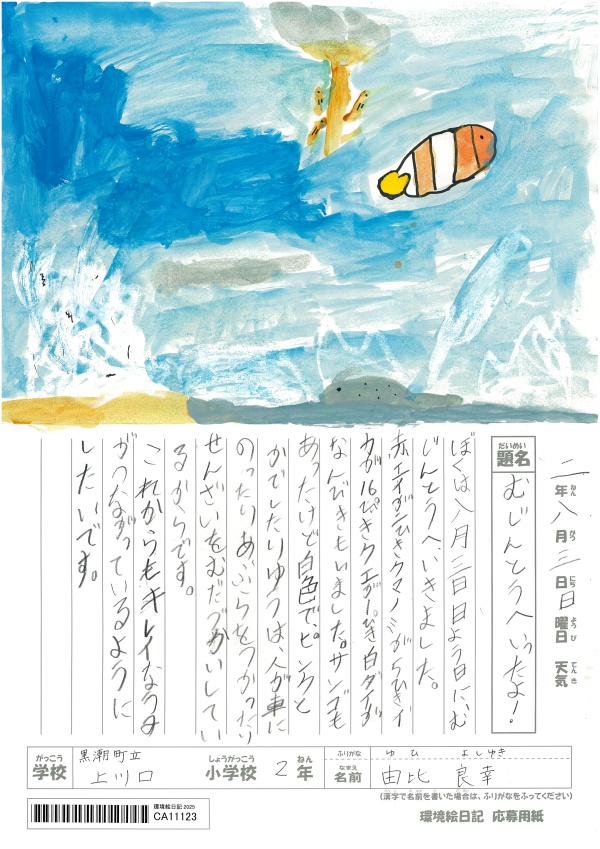 二年八月三日日曜日 天気
ねん がつ にち ようび てんき
だいめい
題名 むじんとうへいったよ!
ぼくは八月三日日よう日に、む
じんとうへ、いきました。
赤エイが二ひきクマノミがら ひきイ
カが16ぴきクエが一ぴき白ダイが
なんびきもいました。サンゴも
あったけど白色で、ピンクと
かでしたりゆうは、人が車に
のったりあぶらをつかったり
せんざいをむだづかいしてい
るからです。
これからもキレイなうみ
がつながっているように
したいです。
がっこう しょうがっこう ねん
学校 黒潮町立 上川口 小学校 2年
ふりがな ゆひ よしゆき
なまえ
名前 由比 良幸
(漢字で名前を書いた場合は、ふりがなをふってください)
環境絵日記 2025
CA11123
環境絵日記 応募用紙